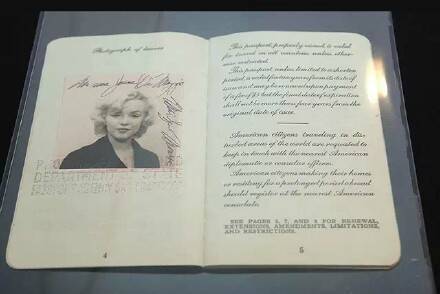 Photograph of bearer
Mrs. Norma Jeane Di Maggio
DEPARTMENT OF STATE
4
This passport, properly visaed, is valid
for travel in all countries unless other-
wise restricted.
This passport, unless limited to a shorter
period, is valid for two years from its date of
issue and may be renewed upon payment
of a fee of $5 but the final date of expiration
shall not be more than four years from the
original date of issue.
American citizens traveling in dis-
turbed areas of the world are requested to
keep in touch with the nearest American
diplomatic or consular officers.
American citizens making their homes
or residing for a prolonged period abroad
should register at the nearest American
consulate.
SEE PAGES 6, 7, AND 8 FOR RENEWAL,
EXTENSIONS, AMENDMENTS, LIMITATIONS,
AND RESTRICTIONS.
5